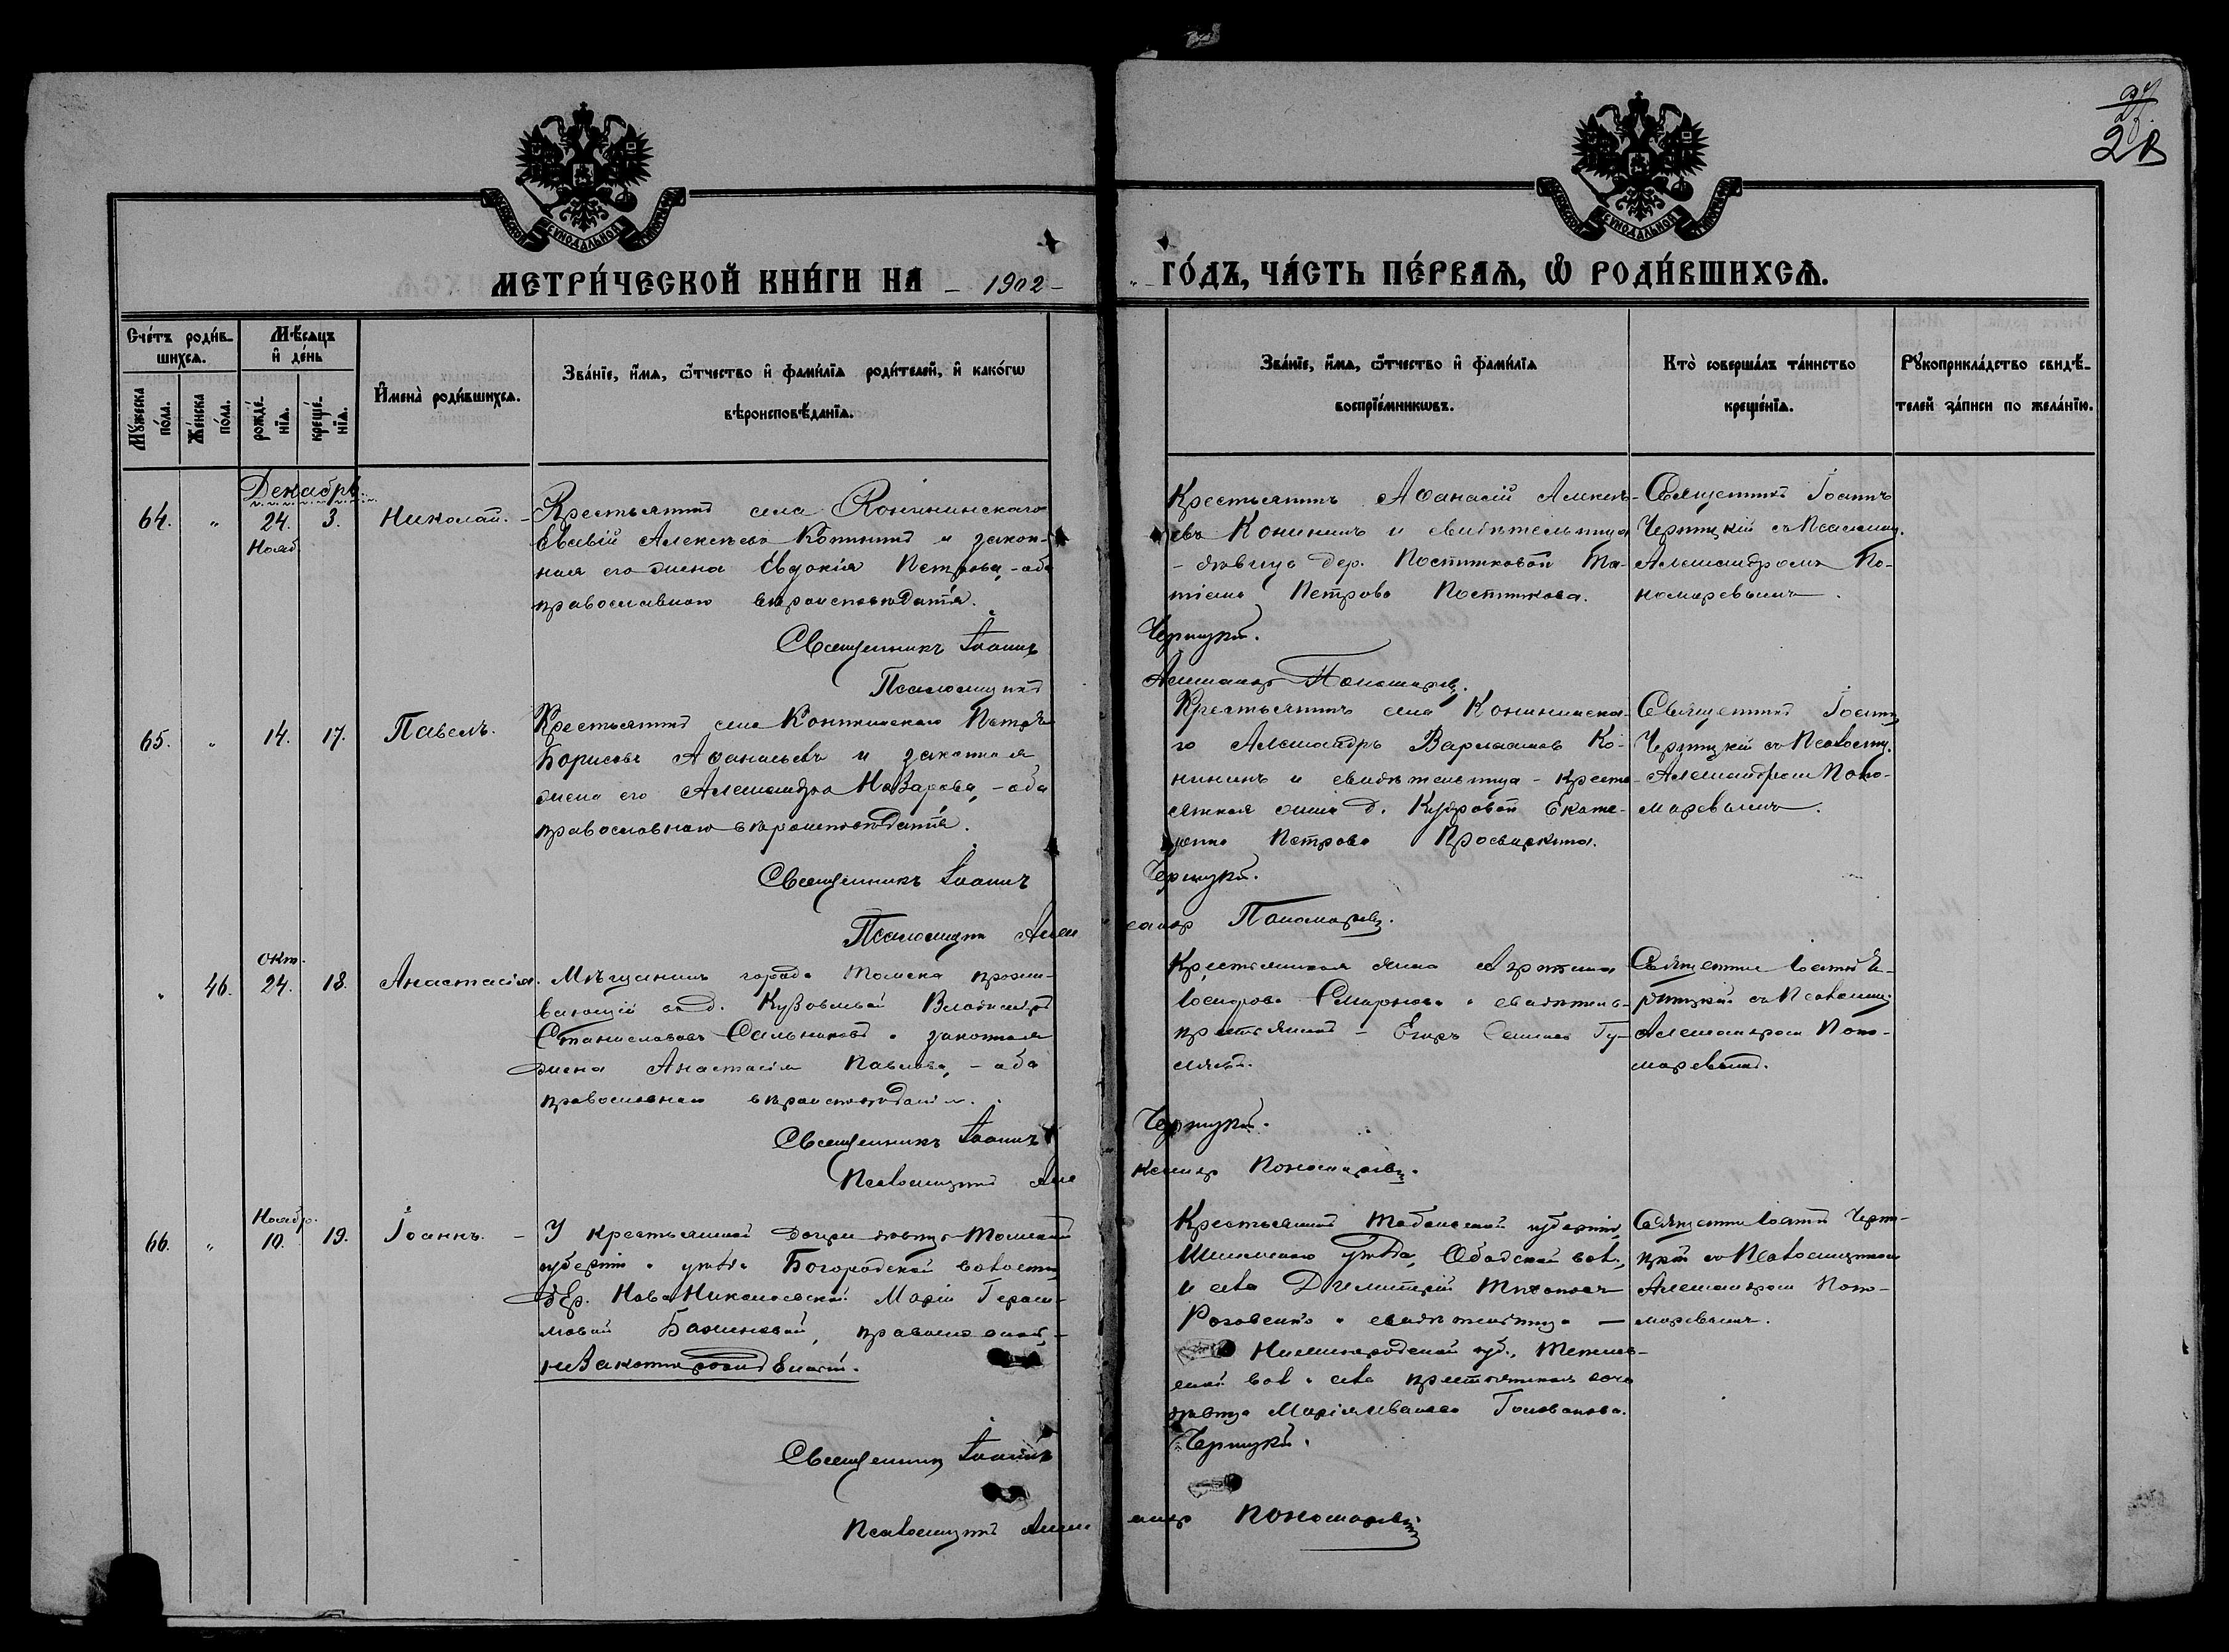 28
МЕТРИ́ЧЕСКОЙ КНИ́ГИ НА 1902
ГО́ДЪ, ЧА́СТЬ ПЕ́РВАѦ, Ѽ РОДИ́ВШИХСѦ.
Сче́тъ роди́в-
шихсѧ.
Мѣ́сѧцъ
и҆ де́нь
Мꙋ́жеска
по́ла.
Же́нска
по́ла.
рожде́-
нїѧ.
креще́-
нїѧ.
И҆мена̀ роди́вшихсѧ.
Зва́нїе, и҆́мѧ, ѻ҆́тчество и҆ фами́лїѧ роди́телей, и҆ како́гѡ
вѣроисповѣ́данїѧ.
Зва́нїе, и҆́мѧ, ѻ҆́тчество и҆ фами́лїѧ
воспрїе́мникѡвъ.
Кто̀ соверша́лъ та́инство
креще́нїѧ.
Рꙋкоприкла́дство свидѣ́-
телей за́писи по жела́нїю.
Декабрь
64. " 24. 3. Николай.
Нояб.
Крестьянинъ села Конининскаго
Алексѣевъ Конининъ и закон-
ная его жена Евдокія Петрова, - оба
православнаго вѣроисповѣданія.
Священникъ Іоаннъ
Псаломщикъ
Крестьянинъ Аѳанасій Алексѣ-
евъ Конининъ и свидѣтельница
- дѣвица дер. Постниковой
Петрова Постникова.
Черницкій.
Пономаревъ.
Священникъ Іоаннъ
Черницкій съ Псаломщ.
Александромъ По-
номаревымъ.
65. " 14. 17. Павелъ.
Крестьянинъ села Конининскаго Петръ
Борисовъ Аѳанасьевъ и законная
жена его Александра Назарова, - оба
православнаго вѣроисповѣданія.
Священникъ Іоаннъ
Псаломщикъ Алек
Крестьянинъ села Конининска-
го Александръ Варлаамовъ Ко-
нининъ и свидѣтельница - кресть-
янская жена д. Кудровой Екате-
рина Петрова Просвиркина.
Черницкій.
сандр Пономаревъ.
Священникъ Іоаннъ
Черницкій съ Псаломщ.
Александромъ Поно-
маревымъ.
" 46. окт. 24. 18. Анастасія.
Мѣщанинъ города Томска прожи-
вающій въ д. Кузовлевой Владиміръ
Станиславовъ Сальниковъ и законная
жена Анастасія Павлова, - оба
православнаго вѣроисповѣданія.
Священникъ Іоаннъ
Псаломщикъ Але
Крестьянская жена
Смирнова и свидѣтель-
крестьянинъ - Егоръ
Черницкій.
ксандр Пономаревъ.
Священникъ Іоаннъ Че-
рницкій съ Псаломщ.
Александромъ Поно-
маревымъ.
66. " Ноябр. 10. 19. Іоаннъ.
У крестьянской дочери дѣвицы Томской
губерніи и уѣзда Богородской волости,
дер. Ново Николаевской Маріи Гераси-
мовой Баженовой, православной, -
незаконнорожденный.
Священникъ Іоаннъ
Псаломщикъ Алек
Крестьянинъ Тобольской губерніи,
Ишимскаго уѣзда, вол.,
и села Димитрій Тихоновъ
Роговенко и свидѣтельница —
Нижнегородской губ.,
вол. и села крестьянская дочь
дѣвица Марія Иванова Голованова.
Черницкій.
сандр Пономаревъ
Священникъ Іоаннъ Черни-
цкій съ Псаломщикомъ
Александромъ Поно-
маревымъ.